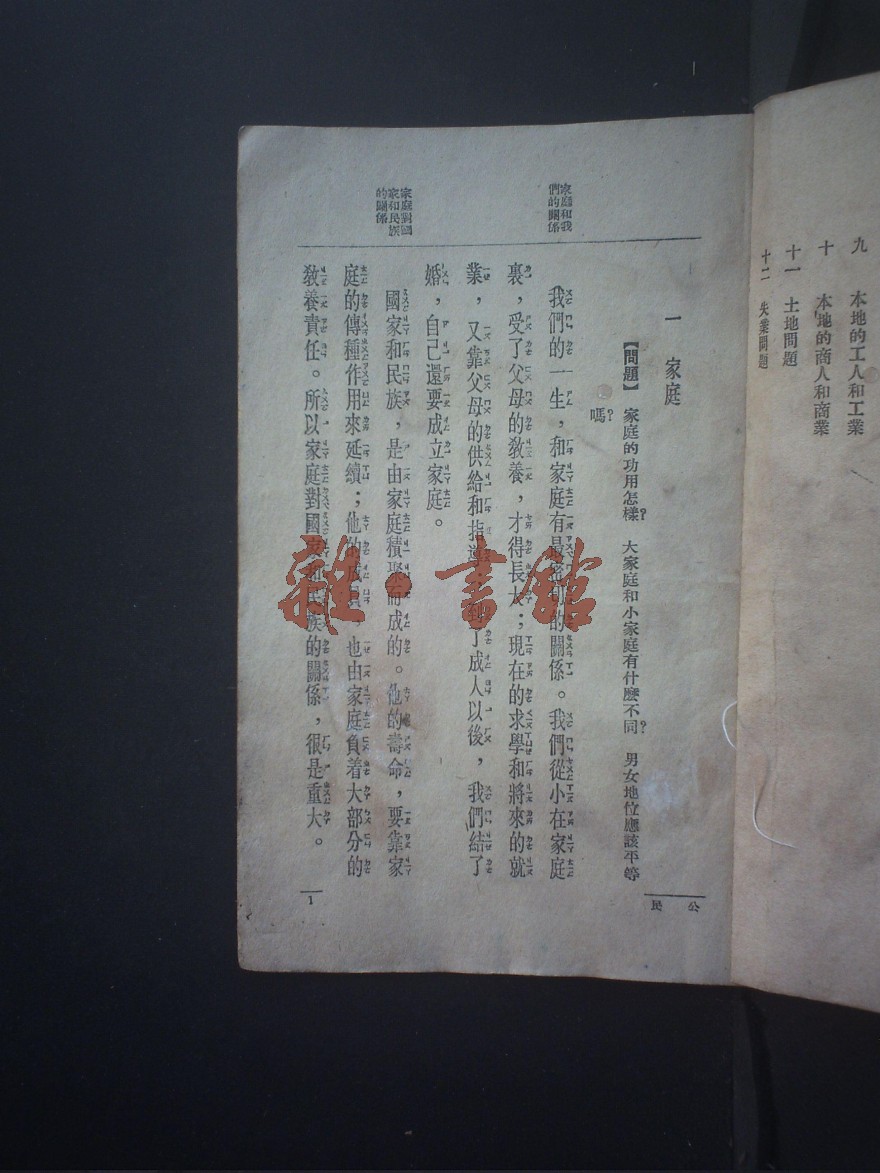 九 本地的工人和工業
十 本地的商人和商業
十一 土地問題
十二 失業問題
公民
一 家庭
【問題】 家庭的功用怎樣？ 大家庭和小家庭有什麼不同？ 男女地位應該平等
嗎？
家庭和我
們的關係
我們的一生，和家庭有最密切的關係。我們從小在家庭
裏，受了父母的教養，才得長大；現在的求學和將來的就
業，又靠父母的供給和指導；到了成人以後，我們結了
婚，自己還要成立家庭。
家庭對國
家和民族
的關係
國家和民族，是由家庭積聚而成的。他的壽命，要靠家
庭的傳種作用來延續；他的成員，也由家庭負着大部分的
教養責任。所以家庭對國家和民族的關係，很是重大。
1
雜·書館